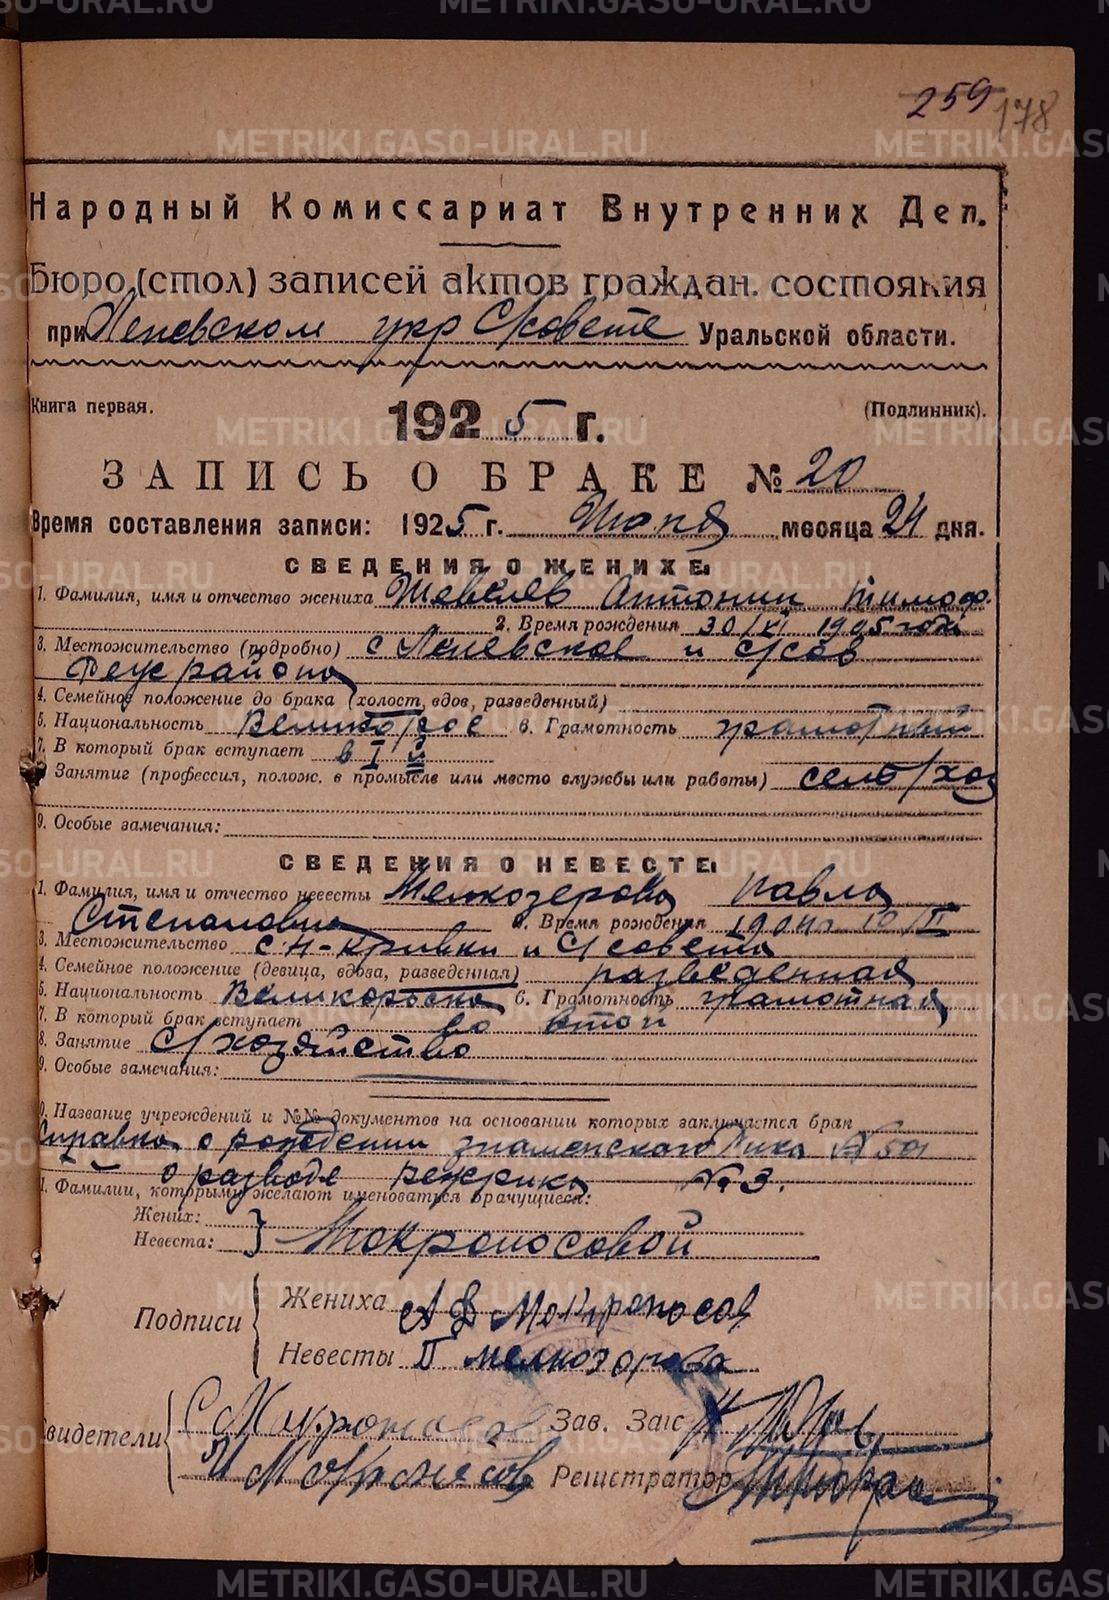 259 178
Народный Комиссариат Внутренних Дел.
Бюро (стол) записей актов граждан. состояния
при Уральской области.
Книга первая. 1925 г. (Подлинник).
ЗАПИСЬ О БРАКЕ № 20
Время составления записи: 1925 г. месяца 24 дня.
СВЕДЕНИЯ О ЖЕНИХЕ.
1. Фамилия, имя и отчество жениха
2. Время рождения 30/XI 1905 года
3. Местожительство (подробно) с Леневское и с/сов
Реж района
4. Семейное положение до брака (холост, вдов, разведенный)
5. Национальность Великорос 6. Грамотность грамотный
7. В который брак вступает в I й
Занятие (профессия, полож. в промысле или место службы или работы) сель/хоз
9. Особые замечания:
СВЕДЕНИЯ О НЕВЕСТЕ:
1. Фамилия, имя и отчество невесты Мелкозерова Павла
Степановна 2. Время рождения 10/II
3. Местожительство с. Н-Кривки и с/совета
4. Семейное положение (девица, вдова, разведенная) разведенная
5. Национальность Великоросска 6. Грамотность грамотная
7. В который брак вступает во втой
8. Занятие с/хозяйство
9. Особые замечания:
0. Название учреждений и №№ документов на основании которых заключается брак
Справка о рождении знаменского № 501
о разводе режрика № 3.
1. Фамилии, которыми желают именоваться брачущиеся:
Жених:
Невеста: } Мокроносовой
Подписи { Жениха Мокроносов
Невесты П Мелкозерова
видетели Зав. Загс
И Мокроносов Регистратор
METRIKI.GASO-URAL.RU